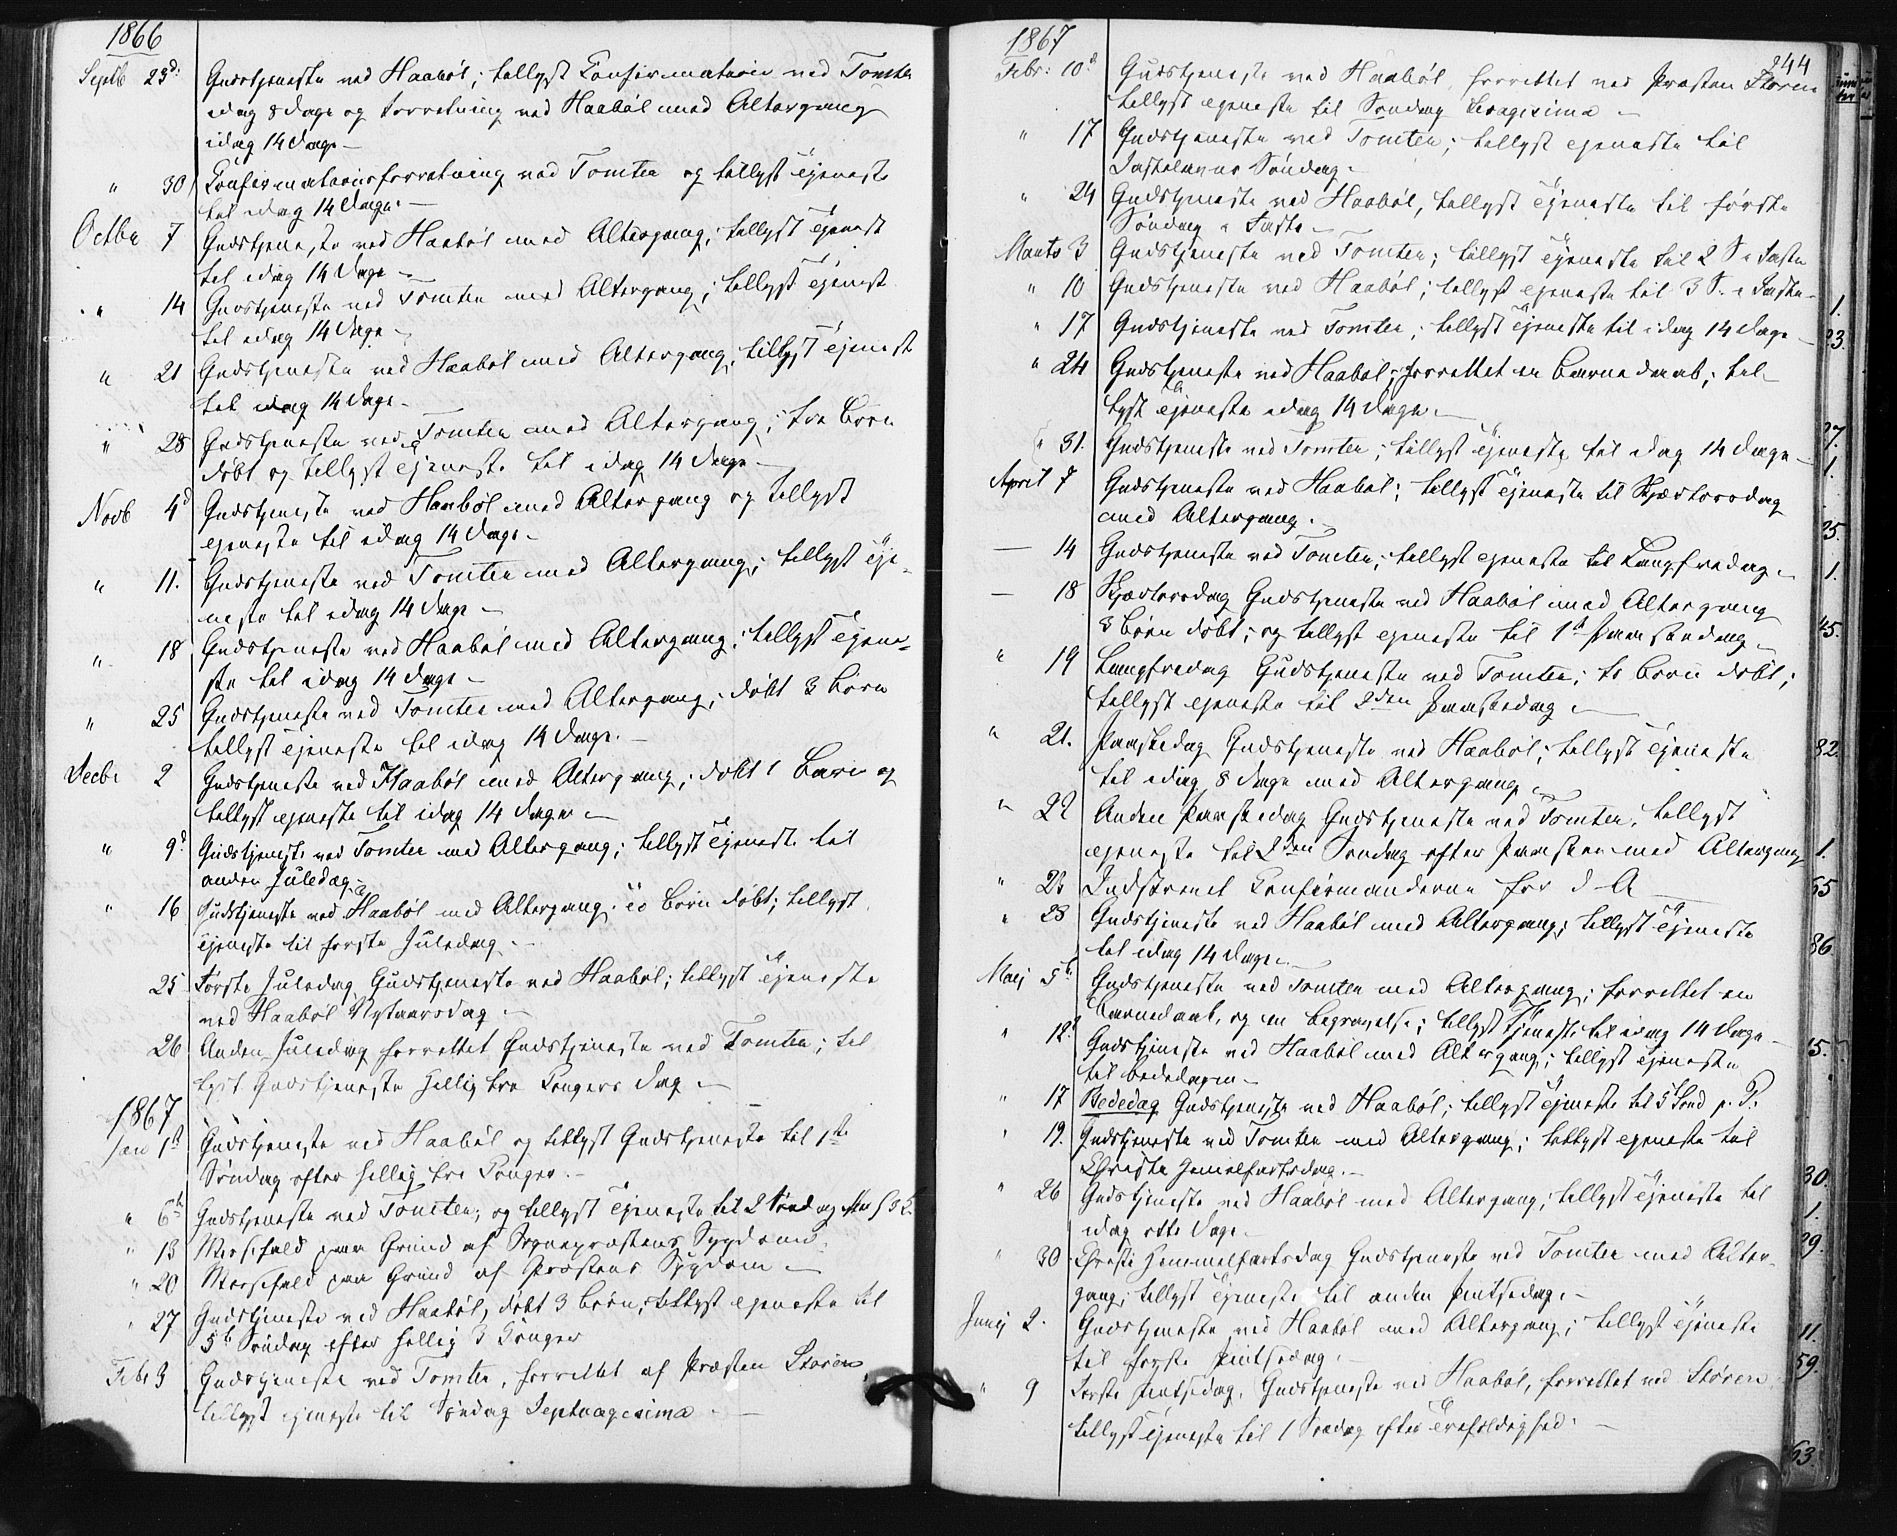 1866
Septb 23d: Gudstjeneste ved Haabøl; tillyst Confirmation ved Tomter
idag 8 Dage og Forretning ved Haabøl med Altergang
idag 14 Dage —
" 30 Confirmationsforretning ved Tomter og tillyst Tjeneste
til idag 14 Dage. —
Octbr 7 Gudstjeneste ved Haabøl med Altergang; tillyst Tjenest
til idag 14 Dage —
" 14 Gudstjeneste ved Tomter med Altergang; tillyst Tjenest
til idag 14 Dage —
" 21 Gudstjeneste ved Haabøl med Altergang; tillyst Tjeneste
til idag 14 Dage —
" 28 Gudstjeneste ved Tomter med Altergang; tre Børn
døbt og tillyst Tjeneste til idag 14 Dage —
Novb 4d Gudstjeneste ved Haabøl med Altergang og tillyst
Tjeneste til idag 14 Dage —
" 11. Gudstjeneste ved Tomter med Altergang; tillyst Tje-
neste til idag 14 Dage —
" 18 Gudstjeneste ved Haabøl med Altergang; tillyst Tjene-
ste til idag 14 Dage —
" 25 Gudstjeneste ved Tomter med Altergang; døbt 3 Børn
tillyst Tjeneste til idag 14 Dage. —
Decbr 2 Gudstjeneste ved Haabøl med Altergang; døbt 1 Barn og
tillyst Tjeneste til idag 14 Dage —
" 9d Gudstjeneste ved Tomter med Altergang; tillyst Tjeneste til
anden Juledag —
" 16 Gudstjeneste ved Haabøl med Altergang; Børn døbt; tillyst
Tjeneste til første Juledag —
25 Første Juledag Gudstjeneste ved Haabøl; tillyst Tjeneste
ved Haabøl Nytaarsdag —
26 Anden Juledag forrettet Gudstjeneste ved Tomter; til
lyst Gudstjeneste Hellig tre Kongers Dag —
1867
Jan 1st Gudstjeneste ved Haabøl og tillyst Gudstjeneste til 1ste
Søndag efter Hellig tre Konger. —
" 6te Gudstjeneste ved Tomter; og tillyst Tjeneste til 2 Søndag
" 13 Messefald paa Grund af Sognepræstens Sygdom
" 20 Messefald paa Grund af Præstens Sygdom —
" 27 Gudstjeneste ved Haabøl, døbt 3 Børn; tillyst Tjeneste til
5te Søndag efter Hellig 3 Konger
Febr 3 Gudstjeneste ved Tomter, forrettet af Præsten Støren
tillyst Tjeneste til Søndag Septuagesima —
1867
244
Febr: 10d Gudstjeneste ved Haabøl forrettet ved Præsten Støren
tillyst Tjeneste til Søndag Sexagesima —
" 17 Gudstjeneste ved Tomter; tillyst Tjeneste til
Fastelavns Søndag —
" 24 Gudstjeneste ved Haabøl, tillyst Tjeneste til første
Søndag i Faste —
Marts 3 Gudstjeneste ved Tomter; tillyst Tjeneste til 2 S i Faste
" 10 Gudstjeneste ved Haabøl; tillyst Tjeneste til 3 S. i Faste —
" 17 Gudstjeneste ved Tomter; tillyst Tjeneste til idag 14 Dage —
" 24 Gudstjeneste ved Haabøl; forrettet en Barnedaab; til-
lyst Tjeneste idag 14 Dage —
" 31. Gudstjeneste ved Tomter; tillyst Tjeneste til idag 14 Dage —
April 7 Gudstjeneste ved Haabøl; tillyst Tjeneste til Skjærtorsdag
med Altergang. —
— 14 Gudstjeneste ved Tomter; tillyst Tjeneste til Langfredag —
— 18 Skjærtorsdag Gudstjeneste ved Haabøl med Altergang
3 Børn døbt; og tillyst Tjeneste til 1st Paaskedag —
" 19 Langfredag Gudstjeneste ved Tomter; to Børn døbt;
tillyst Tjeneste til 2den Paaskedag —
" 21. Paaskedag Gudstjeneste ved Haabøl; tillyst Tjeneste
til idag 8 Dage med Altergang —
" 22 Anden Paaskedag Gudstjeneste ved Tomter, tillyst
Tjeneste til 2den Søndag efter Paaske med Altergang
" 23 Indskrevet Confirmanderne for d A —
" 28 Gudstjeneste ved Haabøl med Altergang; tillyst Tjeneste
til idag 14 Dage —
Maij 5te Gudstjeneste ved Tomter med Altergang; forrettet en
Barnedaab, og en Begravelse; tillyst Tjeneste til idag 14 Dage —
" 12te Gudstjeneste ved Haabøl med Altergang; tillyst Tjeneste
til Bededagen —
" 17 Bededag Gudstjeneste ved Haabøl; tillyst Tjeneste til 5 Sønd p. P.
" 19. Gudstjeneste ved Tomter med Altergang; tillyst Tjeneste til
Christi Himmelfartsdag. —
" 26 Gudstjeneste ved Haabøl med Altergang; tillyst Tjeneste til
idag otte Dage —
" 30 Christi Himmelfartsdag Gudstjeneste ved Tomter med Alter-
gang; tillyst Tjeneste til anden Pintsedag —
Junij 2. Gudstjeneste ved Haabøl med Altergang; tillyst Tjeneste
til første Pintsedag. —
" 9 Første Pintsedag, Gudstjeneste ved Haabøl, forrettet ved Støren
tillyst Tjeneste til 1 Søndag efter Trefoldighed. —
1.
23.
27.
1.
25.
1.
45.
82.
1.
55
86
15.
30.
1.
29.
11.
59.
63.